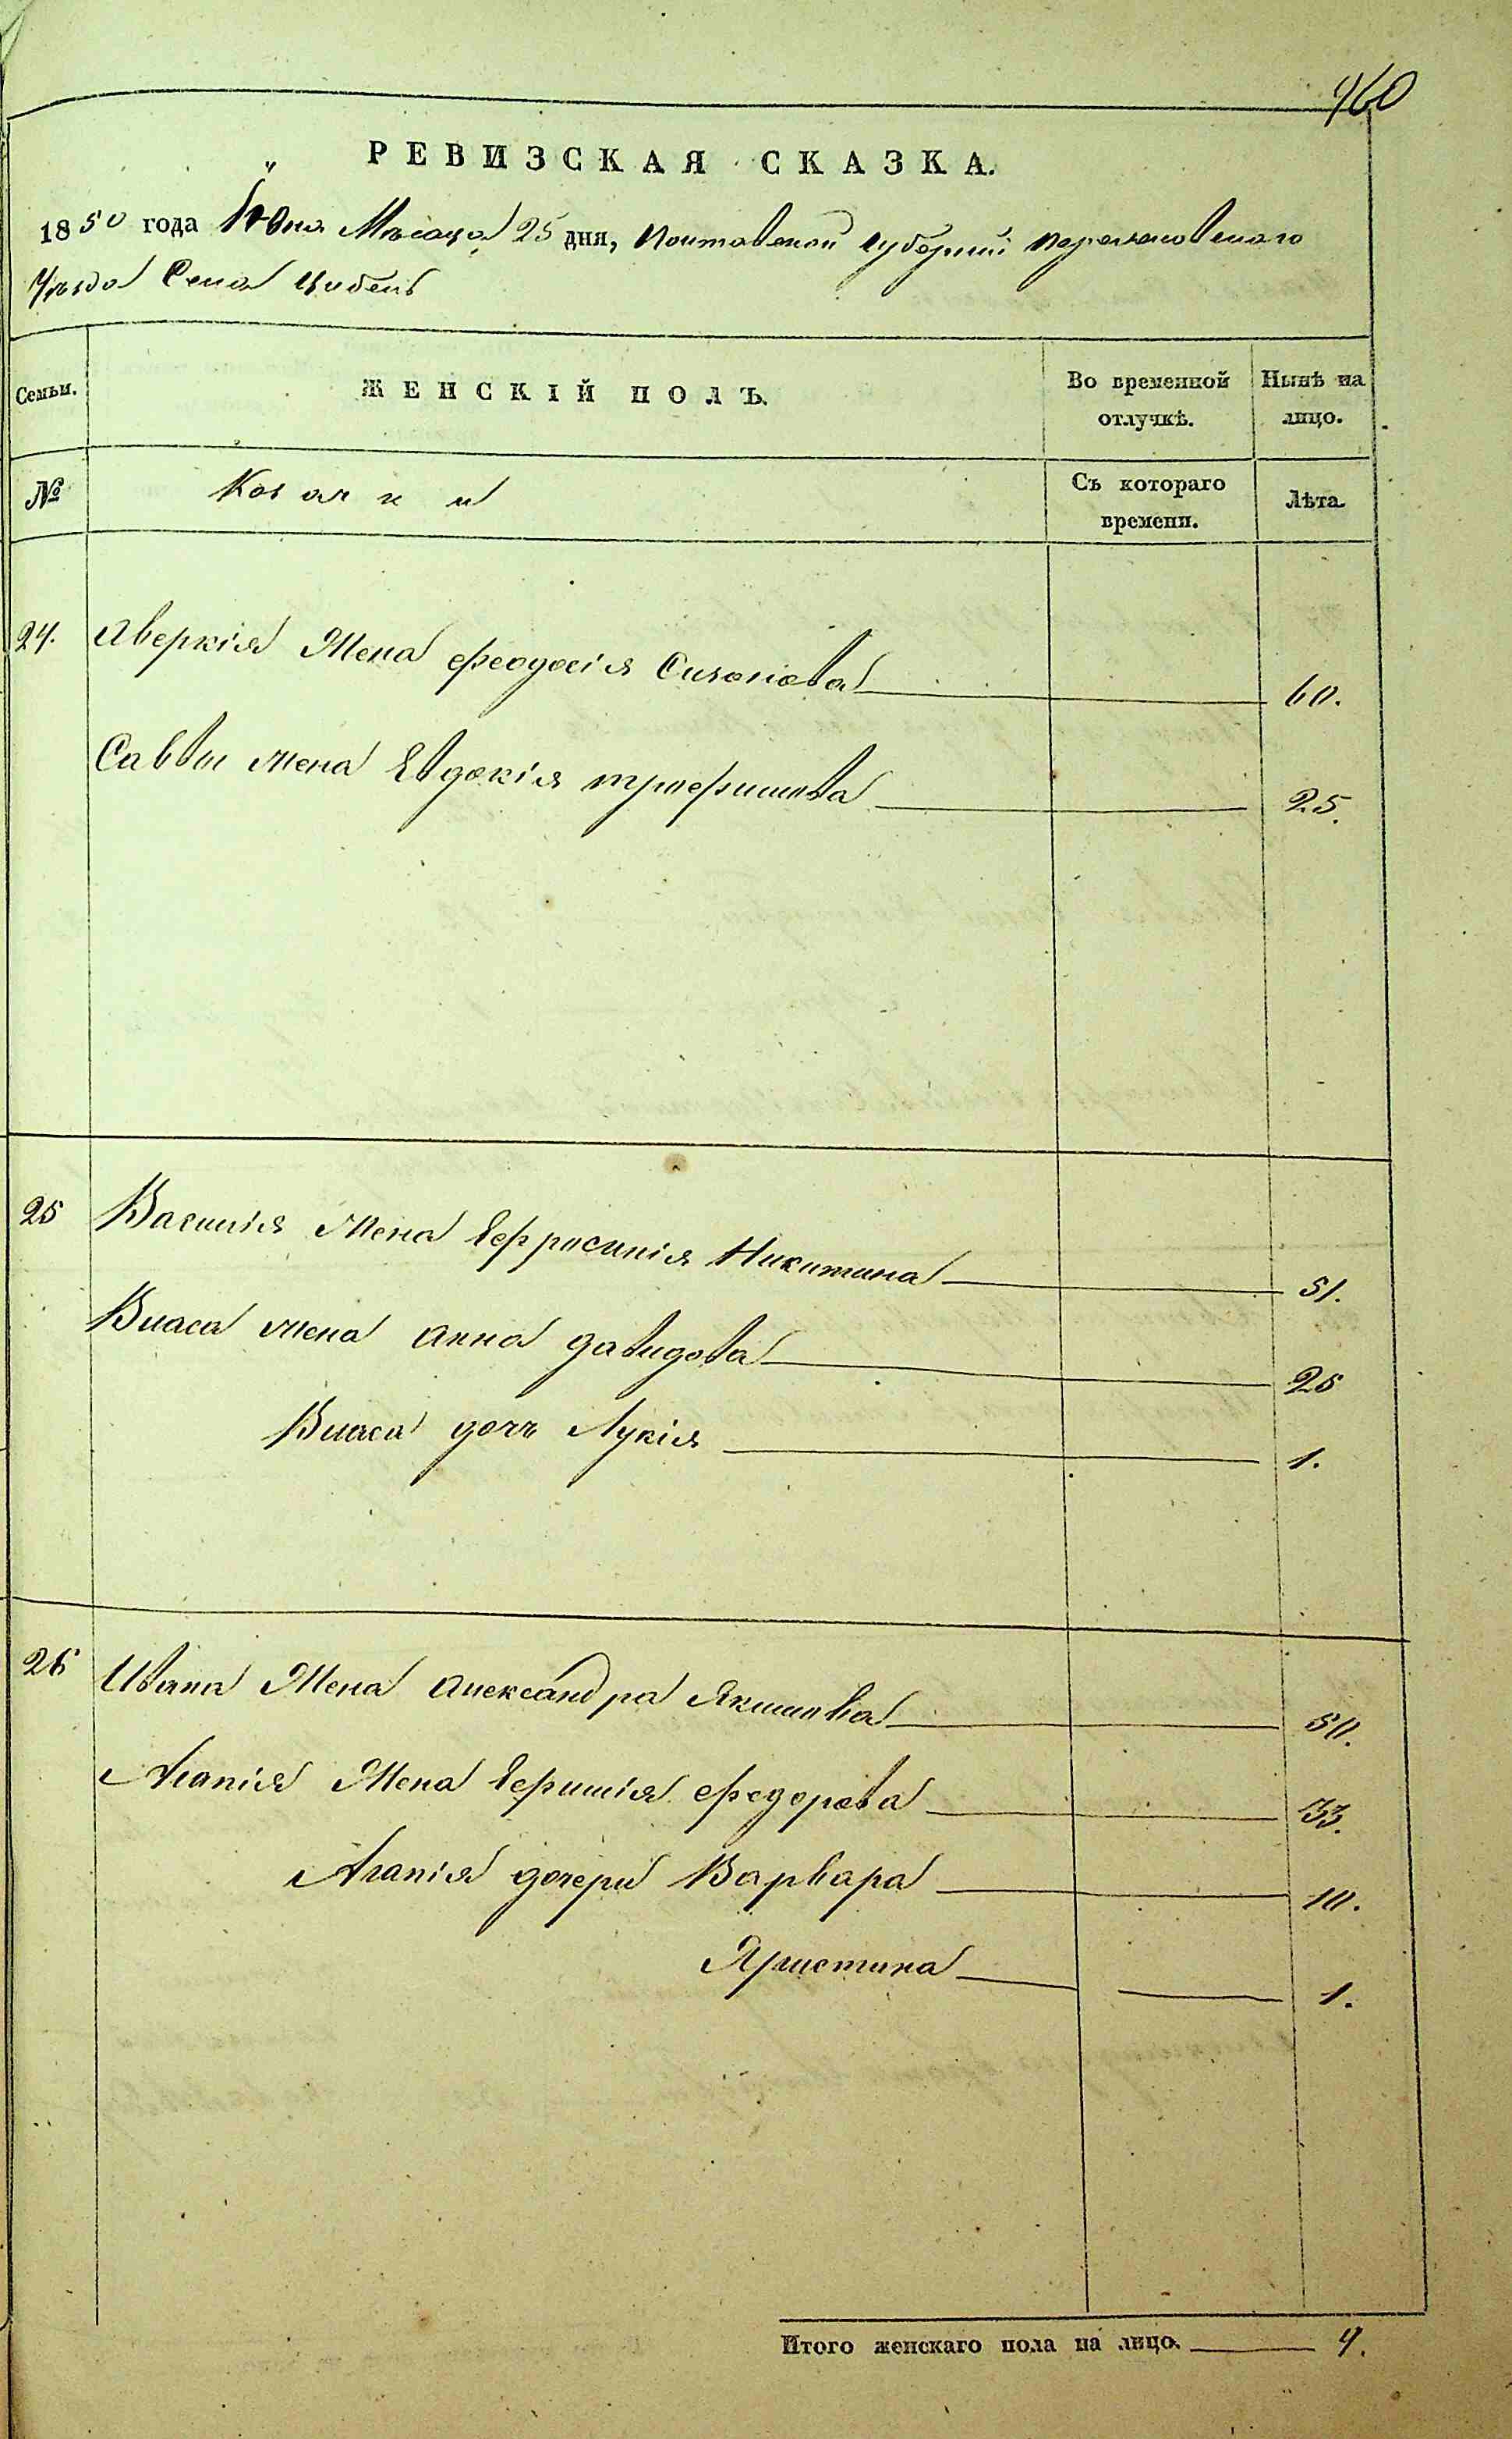 960
РЕВИЗСКАЯ СКАЗКА.
1850 года Іюня Мѣсяца 25 дня, Полтавской губерніи переяславского
Уѣзда Села Цибель
Семьи.
ЖЕНСКІЙ ПОЛЪ.
Во временной отлучкѣ.
Нынѣ на лицо.
№
Козачки
Съ котораго времени.
Лѣта.
24. Аверкія Жена феодосія 60.
Саввы жена Евдокія трофимова 25.
25 Василія Жена Ефросинія Никитина 51.
Власа жена Анна давидова 25
Власа дочь Лукія 1.
26 Ивана Жена Александра Якимова 50.
Агапія Жена Ефимія федорова 33.
Агапія дочери Варвара 10.
Христина 1.
Итого женскаго пола на лицо. 9.